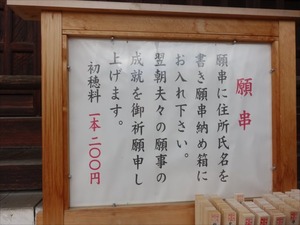 願串
願串に住所氏名を
書き願串納め箱に
お入れ下さい。
翌朝夫々の願事の
成就を御祈願申し
上げます。
初穂料 一本 二〇〇円